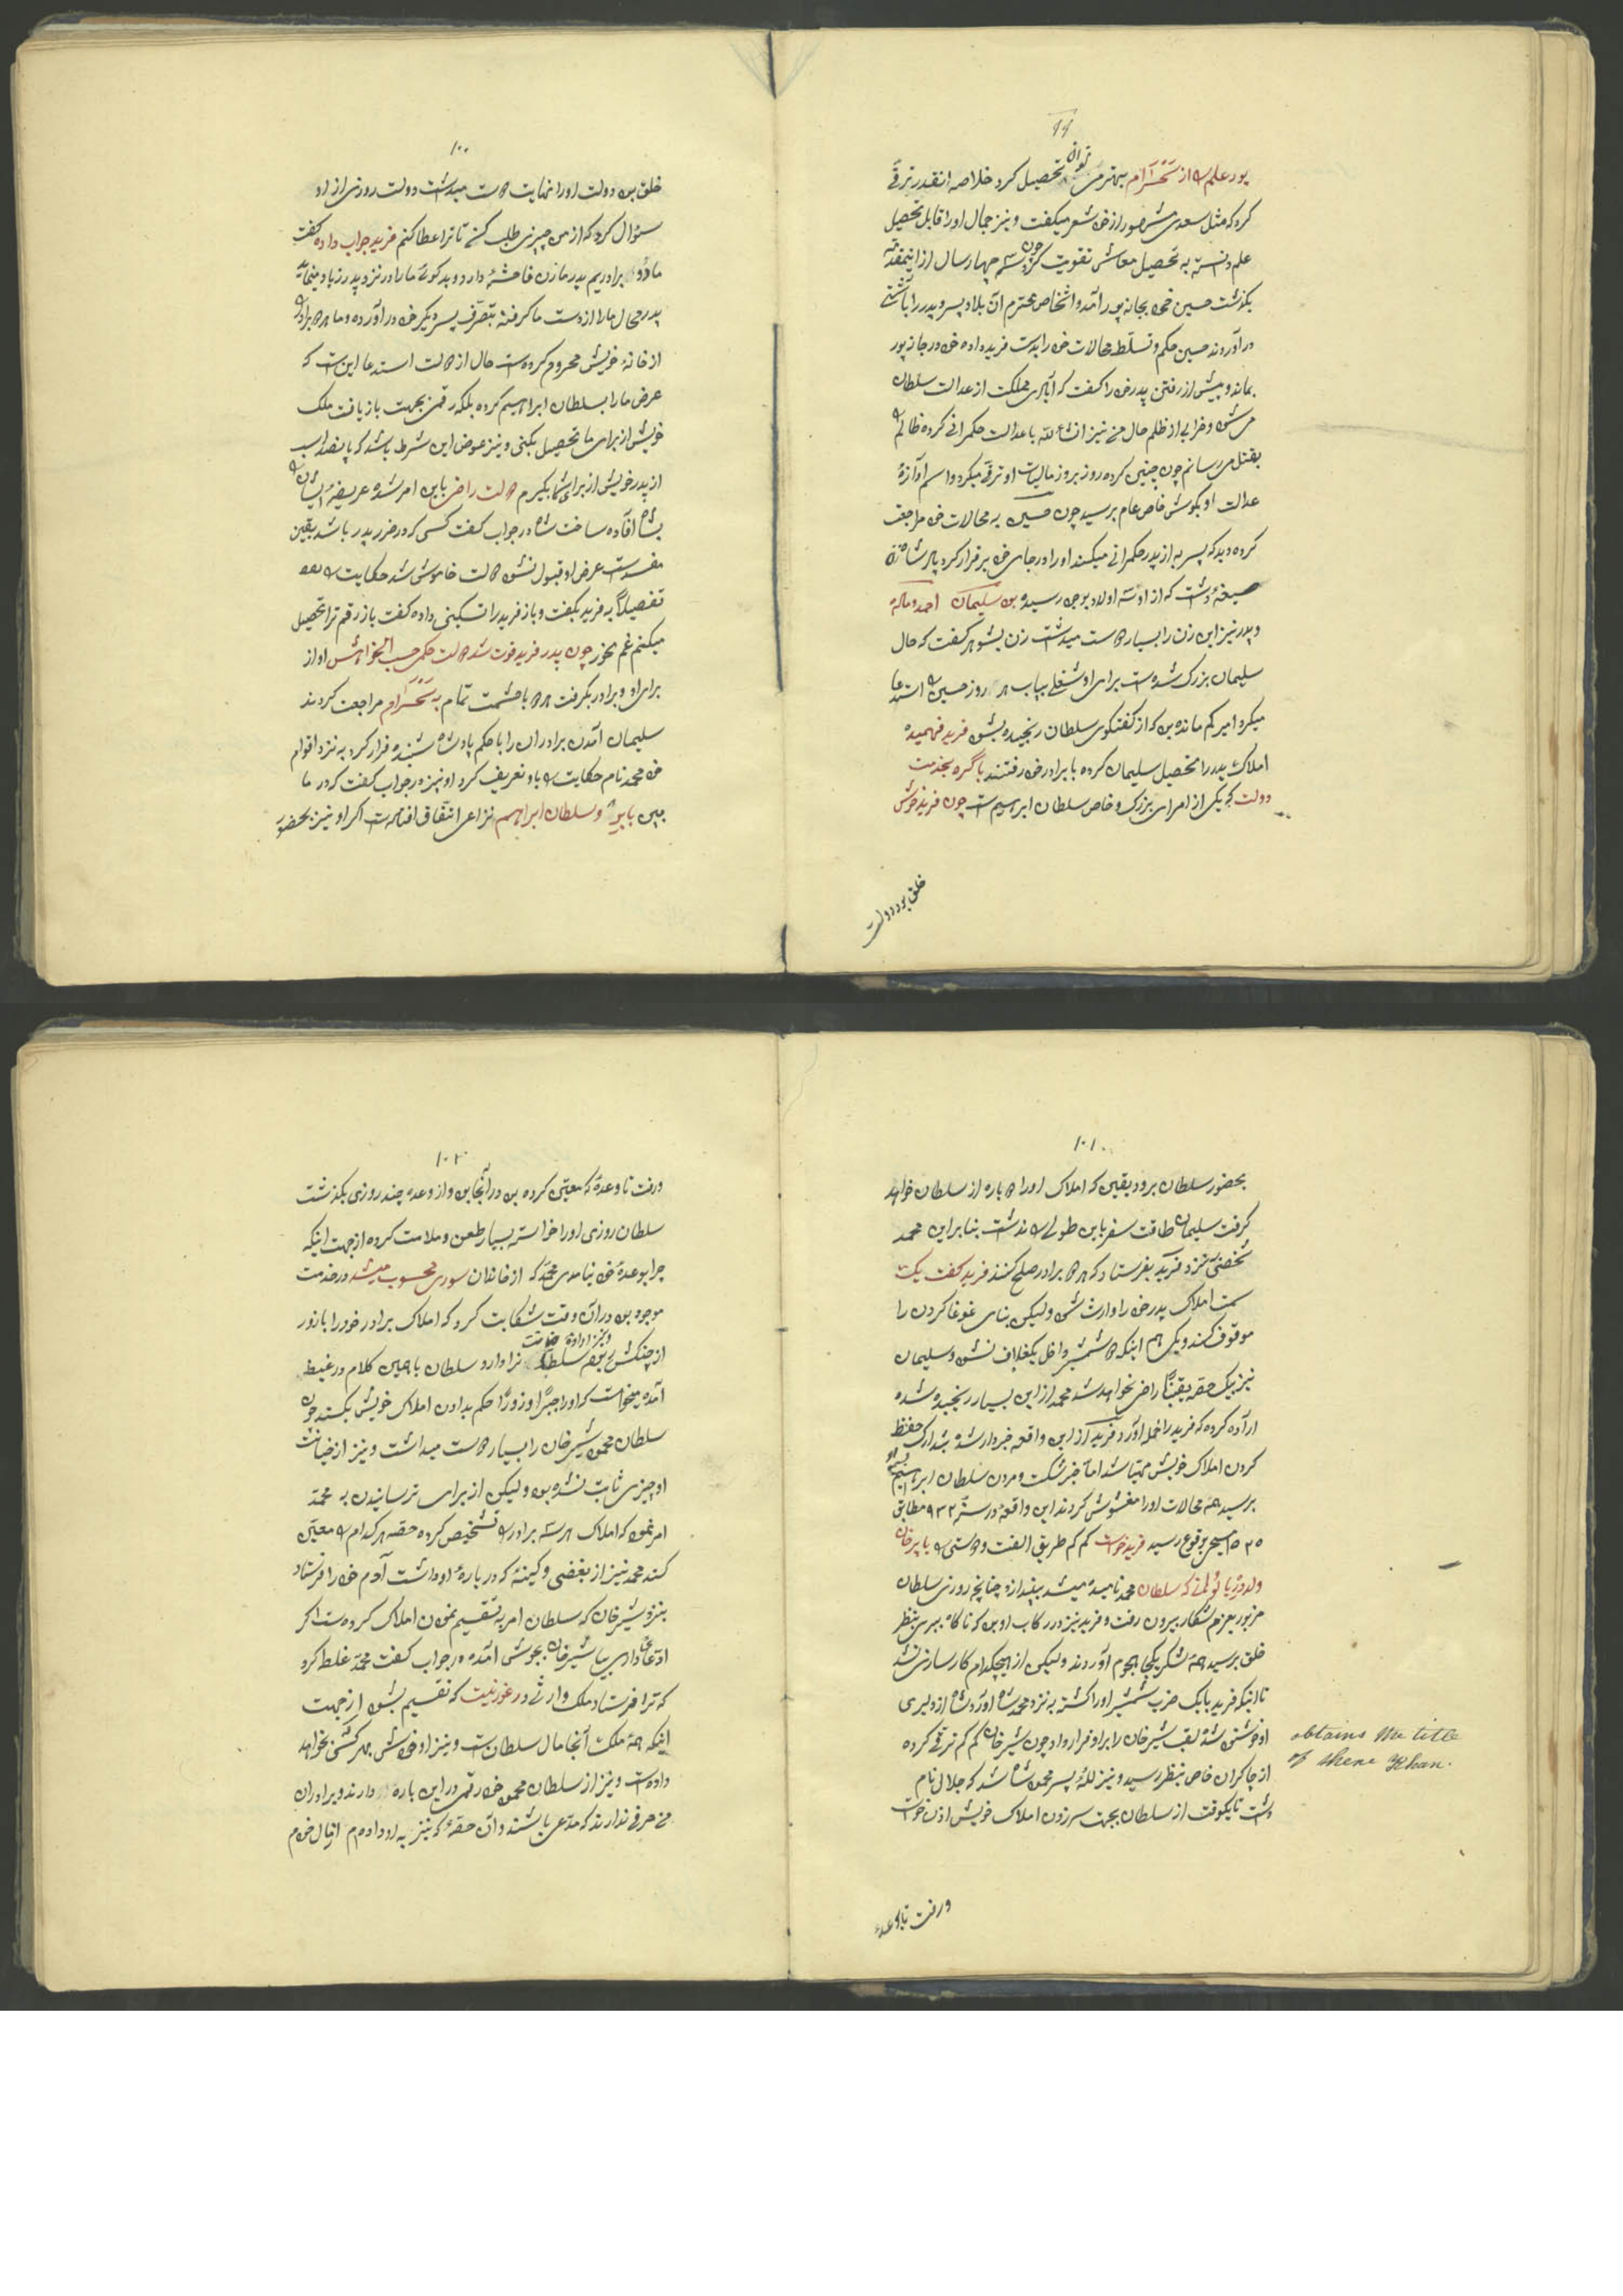 ۹۹
پور علم را از سَهْسَرام بهتر می توان تحصیل کرد خلاصه انقدر ترقی
کرد که مثل سعدی مشهور از خود شعر میگفت و نیز جمال او را قابل تحصیل
علم دانسته به تحصیل معاش تقویت کرد چون سه چهار سال ازاینمقدمه
بگذشت حسین خود بجانه پور رآمد و اشخاص محترم آن بلاد پسر و پدر را بآشتی
در آوردند حسین حکم و تسلّط محالات خود را بدست فرید داده خود در جانه پور
بماند و پیش از رفتن پدر خود را گفت که آبادی مملکت از عدالت سلطان
می شود و خرابی از ظلم حال من نیز انشاءالله با عدالت حکمرانی کرده ظالم را
بقتل می رسانم چون چنین کرده روز بروز مالیات او ترقّی میکرد و اسم آوازهٔ
عدالت او بگوش خاص عام برسید چون حسین بر محالات خود مراجعت
کرده دید که پسر به از پدر حکمرانی میکند او را در جای خود برقرار کرد پدرشان زن
صیغهٔ داشت که از او سه اولاد بوجود رسیده بود سلیمان احمد و ماله
و پدر نیز این زن را بسیار دوست میداشت زن بشوهر گفت که حال
سلیمان بزرک شده است برای او شغلی بیاب هر روز حسین را استدعا
میکرد امیر کم مانده بود که از گفتگوی سلطان رنجیده بشود فرید فهمیده
املاک پدر را تحصیل سلیمان کرده با برادر خود رفتند باگره بخدمت
دولت که یکی از امرای بزرک و خاص سلطان ابراهیم است چون فرید خوش
خلق بود دولت
۱۰۰
خلق بود دولت او را نهایت دوست میداشت دولت روزی از او
سئوال کرد که از من چیزی طلب کن تا ترا عطا کنم فرید جواب داده گفت
ما دو برادریم پدر ما زن فاحشهٔ دارد و بدگوئی ما را در نزد پدر زیاد مینماید
پدر محال ما را از دست ما گرفته بتصرّف پسر دیگر خود در آورده و ما دو برادر را
از خانهٔ خویش محروم کرده است حال از دولت استدعا این است که
عرض ما را بسلطان ابراهیم کرده بلکه رقمی بجهت بازیافت ملک
خویش از برای ما تحصیل بکنی و نیز عوض این شرط باشد که پانصد اسب
از پدر خویش از برای شما بگیرم دولت راضی باین امر شده عریضهٔ ایشان را
بشاه افاده ساخت شاه در جواب گفت کسی که در ضرر پدر باشد یقین
مفسد است عرض او قبول نشود دولت خاموش شد حکایت را بعد
تفصیلاً به فرید بگفت و باز فرید را تسکینی داده گفت باز رقم ترا تحصیل
میکنم غم مخور چون پدر فرید فوت شد دولت حکمی حسب الخواهش او از
برای او و برادر بگرفت هر دو با حشمت تمام به سَهْسَرام مراجعت کردند
سلیمان آمدن برادران را با حکم پادشاه شنیده فرار کرد به نزد اقوام
خود محمد نام حکایت را باو تعریف کرد او نیز در جواب گفت که در ما
بین بابر و سلطان ابراهیم نزاعی اتّفاق افتاده است اگر او نیز بحضور
۱۰۱
بحضور سلطان برود یقین که املاک او را دوباره از سلطان خواهد
گرفت سلیمان طاقت سفر باین طولی را نداشت بنابراین محمد
شخصی نزد فرید بفرستاد که هر دو برادر صلح کنند فرید گفت یک
سمت املاک پدر خود را وارث شود ولیکن بنای غوغا کردن را
موقوف کند و یکی هم اینکه دو شمشیر داخل یکغلاف نشود و سلیمان
نیز بیک حصه یقیناً راضی نخواهد شد محمد از این بسیار رنجیده شده
اراده کرده که فرید را حمله آورد فرید از این واقعه خبردار شده بتدارک حفظ
کردن املاک خویش مهیّا شد امّا خبر شکست و مردن سلطان ابراهیم
برسید همه محالات او را مغشوش کردند این واقعهٔ در سنهٔ ۹۳۲ مطابق
۱۵۲۵ مسیحی بوقوع رسید فرید خواست کم کم طریق الفت و دوستی را با پرخان
ولد دریا لوکه سلطان محمد نامیده میشد بیندازد چنانچه روزی سلطان
مزبور بعزم شکار بیرون رفت و فرید نیز در رکاب او بود که ناگاه ببری بنظر
خلق برسید همه لشکر یکجا هجوم آوردند ولیکن از هیچکدام کارسازی نشد
تا اینکه فرید با یک ضرب شمشیر او را کشته به نزد محمد شاه آورد شاه از دلیری
او خوشنود شده لقب شیرخان را بر او قرار داد چون شیرخان کم کم ترقّی کرده
از چاکران خاص بنظر رسید و نیز للهٔ پسر محمود شاه شد که جلال نام
داشت تا یکوقت از سلطان بجهت سرزدن املاک خویش اذن خواست
obtains the title
of shere Khan.
و رفت تا وعدهٔ
۱۰۲
و رفت تا وعدهٔ که معیّن کرده بود در آنجا بود و از وعده چند روزی بگذشت
سلطان روزی او را خواسته بسیار طعن و ملامت کرده از جهت اینکه
چرا بوعدهٔ خود نیامدی محمد که از خاندان سوری محسوب میشد در خدمت
موجود بود در آن وقت شکایت کرد که املاک برادر خود را با زور
ترا دارد و سلطان با همین کلام در غیظ
آمده میخواست که او را جبراً و زوراً حکم بدادن املاک خویش بکند چون
سلطان محمود شیرخان را بسیار دوست میداشت و نیز از خیانت
او چیزی ثابت نشده بود ولیکن از برای ترسانیدن به محمّد
امر نمود که املاک هر سه برادر را تشخیص کرده حصّه هر کدام را معیّن
کند محمد نیز از بغضی و کینهٔ که در بارهٔ او داشت آدم خود را فرستاد
بنزد شیرخان که سلطان امر به تقسیم نمودن املاک کرده است اگر
ادّعا داری بیا شیرخان بجوش آمده در جواب گفت محمّد غلط کرد
که ترا فرستاد ملک وارثی در غور نیست که تقسیم بشود از جهت
اینکه همهٔ ملک آنجا مال سلطان است و نیز او خودش بهر کسی بخواهد
داده است و نیز از سلطان محمود خود رقمی در این باره دارند و برادران
من حرفی ندارند که مدّعی باشند و آن حصّهٔ که نیز به او داده ام اقبال خودم